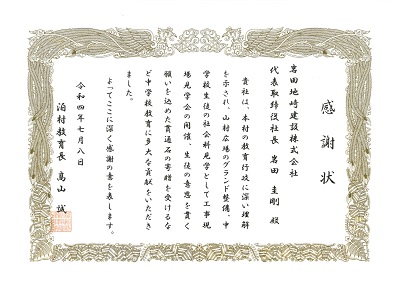 感謝状
岩田地崎建設株式会社
代表取締役社長 岩田 圭剛 殿
貴社は、本村の教育行政に深い理解
を示され、山村広場のグランド整備、中
学校生徒の社会科見学として工事現
場見学会の開催、生徒の意志を貫く
願いを込めた貫通石の寄贈を受けるな
ど中学校教育に多大な貢献をいただき
ました。
よってここに深く感謝の意を表します。
令和四年七月八日
泊村教育長 髙山 誠